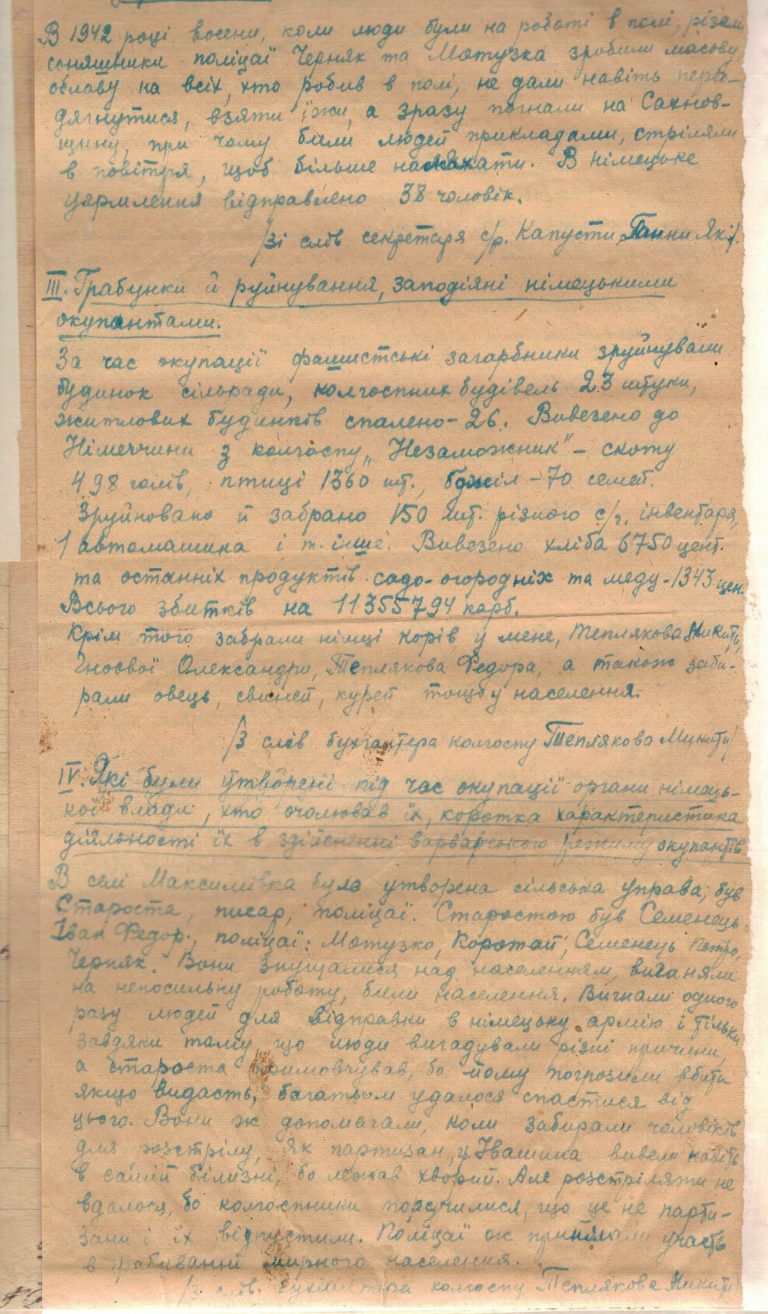 В 1942 році восени, коли люди були на роботі в полі, різали
соняшники поліцаї Черняк та Мотузка зробили масову
облаву на всіх, хто робив в полі, не дали навіть пере-
дягнутися, взяти їжи, а зразу погнали на Сахнов-
щину, при чому били людей прикладами, стріляли
в повітря, щоб більше налякати. В німецьке
ярмлення відправлено 38 чоловік.
/Зі слів секретаря с/р. Капусти Ганни Як./
III. Грабунки й руйнування, заподіяні німецькими
окупантами.
За час окупації фашистські загарбники зруйнували
будинок сільради, колгоспних будівель 23 штуки,
житлових будинків спалено - 26. Вивезено до
Німеччини з колгоспу „Незаможник" - скоту
498 голів, птиці 1360 шт., бджіл - 70 семей.
Зруйновано й забрано 150 шт. різного с/г. інвентаря,
1 автомашина і т. інше. Вивезено хліба 6750 цент.
та останніх продуктів садо-огородніх та меду - 1343 цен.
Всього збитків на 11355794 карб.
Крім того забрали німці корів у мене, Теплякова Микити,
Гноєвої Олександри, Теплякова Федора, а також заби-
рали овець, свиней, курей тощо у населення.
/З слів бухгалтера колгоспу Теплякова Микити/
IV. Які були утворені під час окупації органи німець-
кої влади, хто очолював їх, коротка характеристика
діяльності їх в здійсненні варварського режиму окупантів.
В селі Максимівка була утворена сільська управа, був
Староста, писар, поліцаї. Старостою був Семенець
Іван Федор., поліцаї: Мотузко, Коротай, Семенець Петро,
Черняк. Вони знущалися над населенням, виганяли
на непосильну роботу, били населення. Вигнали одного
разу людей для відправки в німецьку армію і тільки
завдяки тому, що люди вигадували різні причини,
а староста примовчував, бо йому погрозили вбити
якщо видасть, багатьом удалося спастися від
цього. Вони ж допомагали, коли забирали чоловіків
для розстрілу, як партизан, у Івашина вивели навіть
в самій білизні, бо лежав хворий. Але розстріляти не
вдалося, бо колгоспники поручилися, що це не парти-
зани і їх відпустили. Поліцаї ж приймали участь
в грабуванні мирного населення.
/З слів бухгалтера колгоспу Теплякова Микити